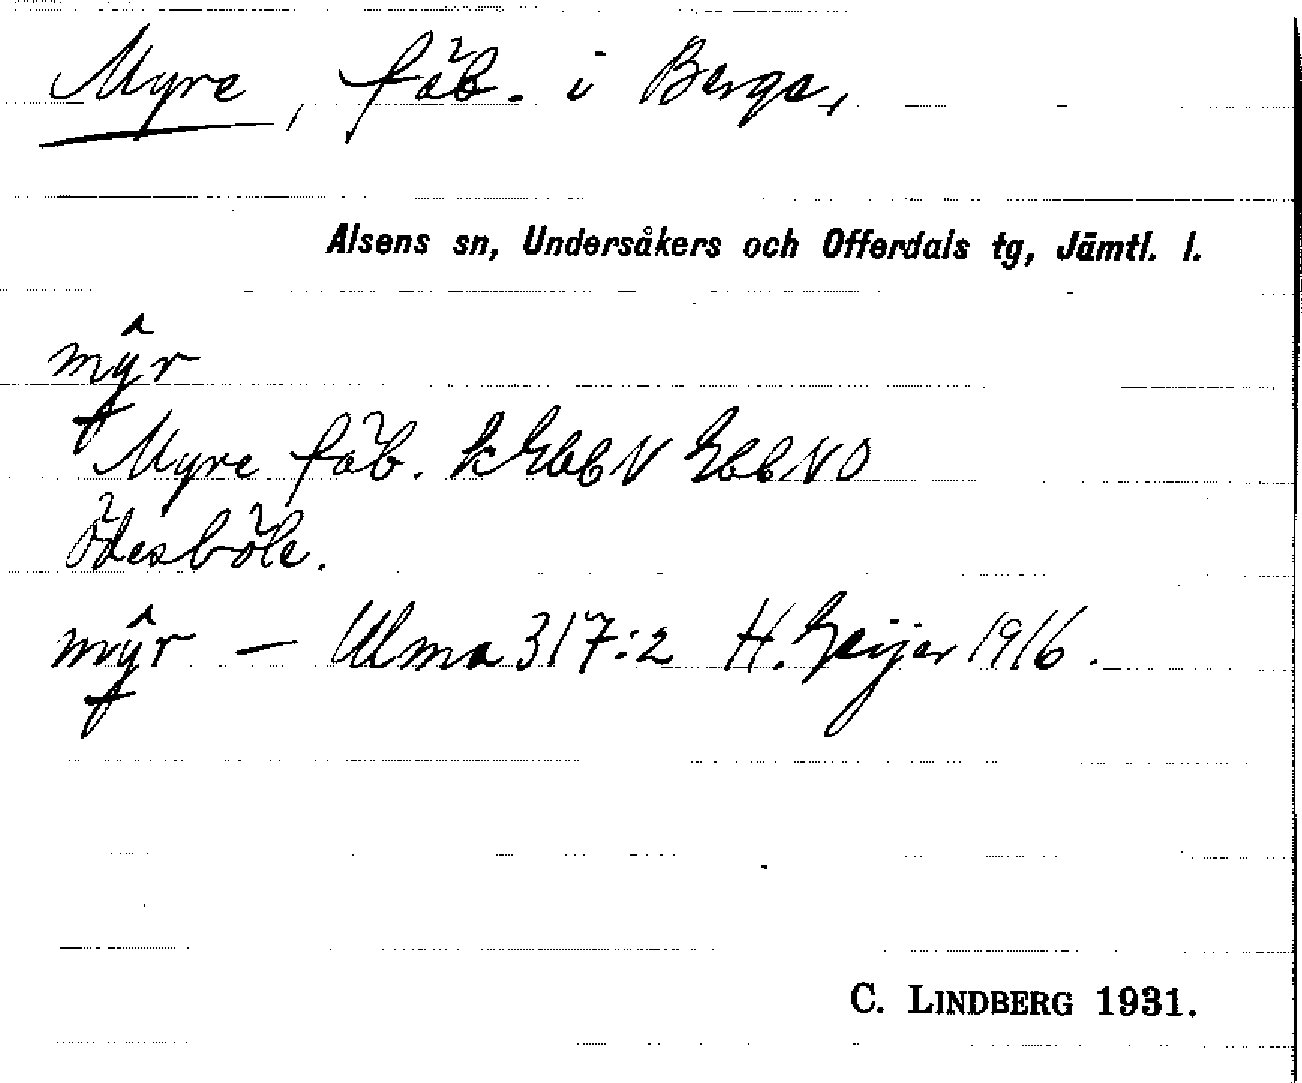 Myre, fäb. i Berge,
Alsens sn, Undersåkers och Offerdals tg, Jämtl. l.
mŷr
Myre fäb. k GEbbN GEbbNO
Ödesböle.
mŷr — Ulma 317:2 H. Geijer 1916.
C. LINDBERG 1931.